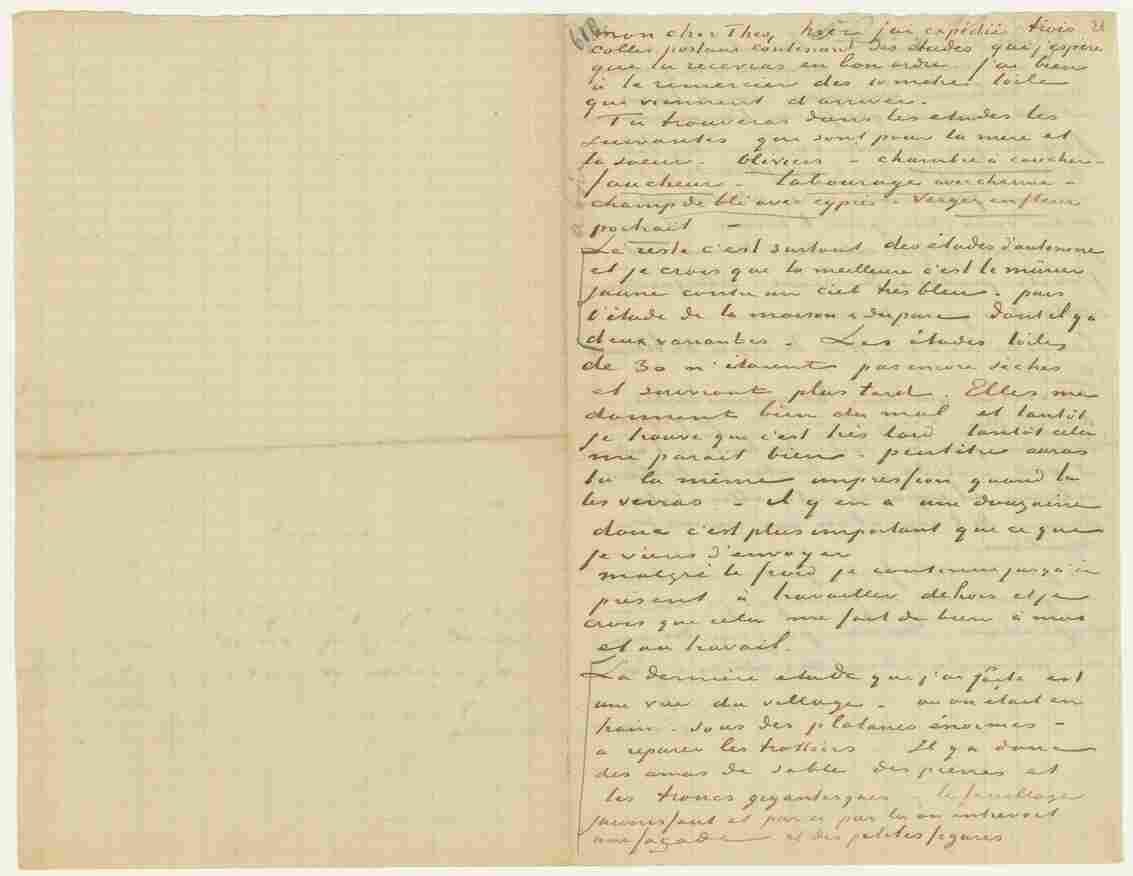 mon cher Theo, hier j'ai expédié trois
colis postaux contenant des études que j'espère
que tu recevras en bon ordre. j'ai bien
à te remercier des 10 mètres toile
qui viennent d'arriver.
Tu trouveras dans les etudes les
suivantes qui sont pour la mere et
la soeur. Oliviers - chambre à coucher -
faucheur - labourage avec charrue -
champ de blé avec cyprès - verger en fleur
portrait -
Le reste c'est surtout des études d'automne
et je crois que la meilleure c'est le mûrier
jaune contre un ciel très bleu. puis
l'étude de la maison & du parc dont il y a
deux variantes. Les études toiles
de 30 n'étaient pas encore sèches
et suivront plus tard. Elles me
donnent bien du mal et tantôt
je trouve que c'est très laid tantôt cela
me parait bien - peutêtre auras
tu la même impression quand tu
les verras - il y en a une douzaine
donc c'est plus important que ce que
je viens d'envoyer
malgré le froid je continue jusqu'à
présent à travailler dehors et je
crois que cela me fait du bien à moi
et au travail.
La dernière etude que j'ai faite est
une vue du village - ou on était en
train - sous des platanes énormes -
a reparer les trottoirs Il y a donc
des amas de sable des pierres et
les troncs gigantesques - le feuillage
jaunissant et par ci par là on entrevoit
une façade et des petites figures